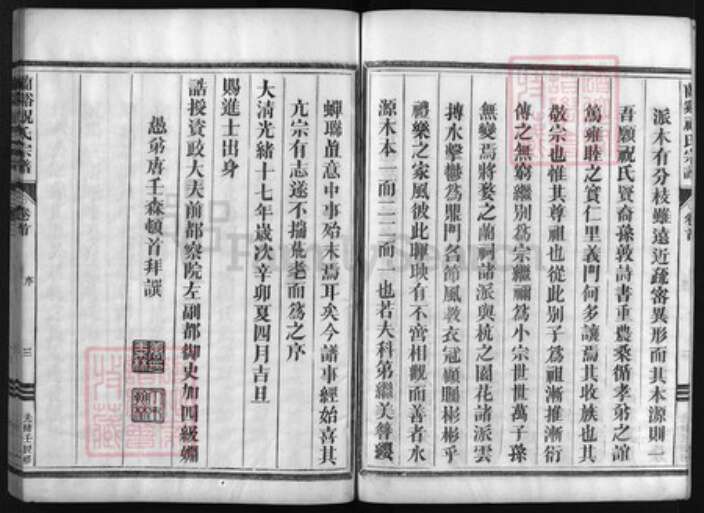 派木有分枝雖遠近疏密異形而其本源則一
吾願祝氏賢裔孫敦詩書重農桑循孝弟之誼
篤雍睦之實仁里義門何多讓焉其收族也其
敬宗也惟其尊祖也從此別子爲祖漸推漸衍
傳之無窮繼別爲宗繼禰爲小宗世世萬子孫
無變焉將婺之蘭祠諸派與杭之園花諸派雲
摶水擊轡爲鼎門名節風教衣冠巔縣彬彬乎
禮樂之家風彼此聯映有不啻相觀而善者水
源木本一而二二而一也若夫科弟繼美簪纓
蟬聯葢意中事始末焉耳矣今譜事經始喜其
亢宗有志遂不揣荒老而爲之序
大清光緒十七年歲次辛卯夏四月吉旦
賜進士出身
誥授資政大夫前都察院左副都御史加四級姻
愚弟唐壬森頓首拜譔
蘭谿祝氏宗譜
卷首
序
三
光緒壬辰修
蘭谿祝氏宗譜
卷首
FamilySearch